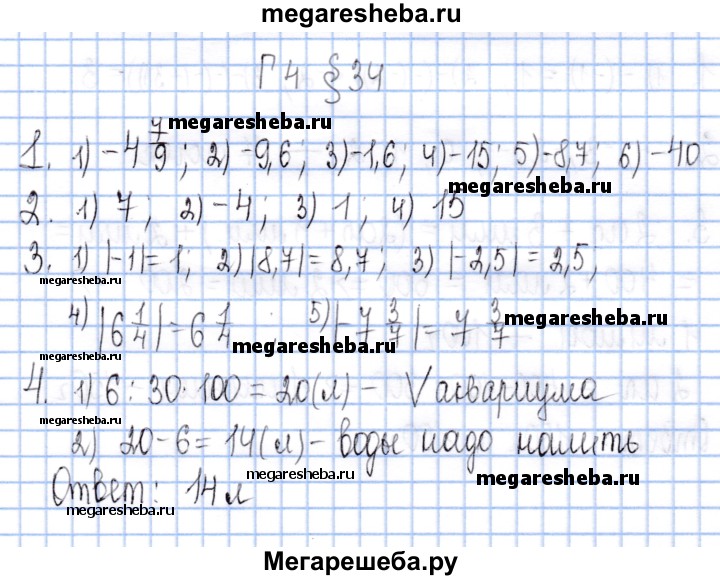 megaresheba.ru
Г 4 § 34
megaresheba.ru
1. 1) -4 7/9; 2) -9,6; 3) -1,6; 4) -15; 5) -8,7; 6) -40
megaresheba.ru
2. 1) 7; 2) -4; 3) 1; 4) 15
3. 1) |-1| = 1; 2) |8,7| = 8,7; 3) |-2,5| = 2,5;
megaresheba.ru
4) |6 1/4| = 6 1/4; 5) |-7 3/7| = 7 3/7
megaresheba.ru
megaresheba.ru
megaresheba.ru
4. 1) 6 : 30 · 100 = 20 (л) - V аквариума
megaresheba.ru
2) 20 - 6 = 14 (л) - воды надо налить
Ответ: 14 л
megaresheba.ru
megaresheba.ru
megaresheba.ru
Мегарешеба.ру